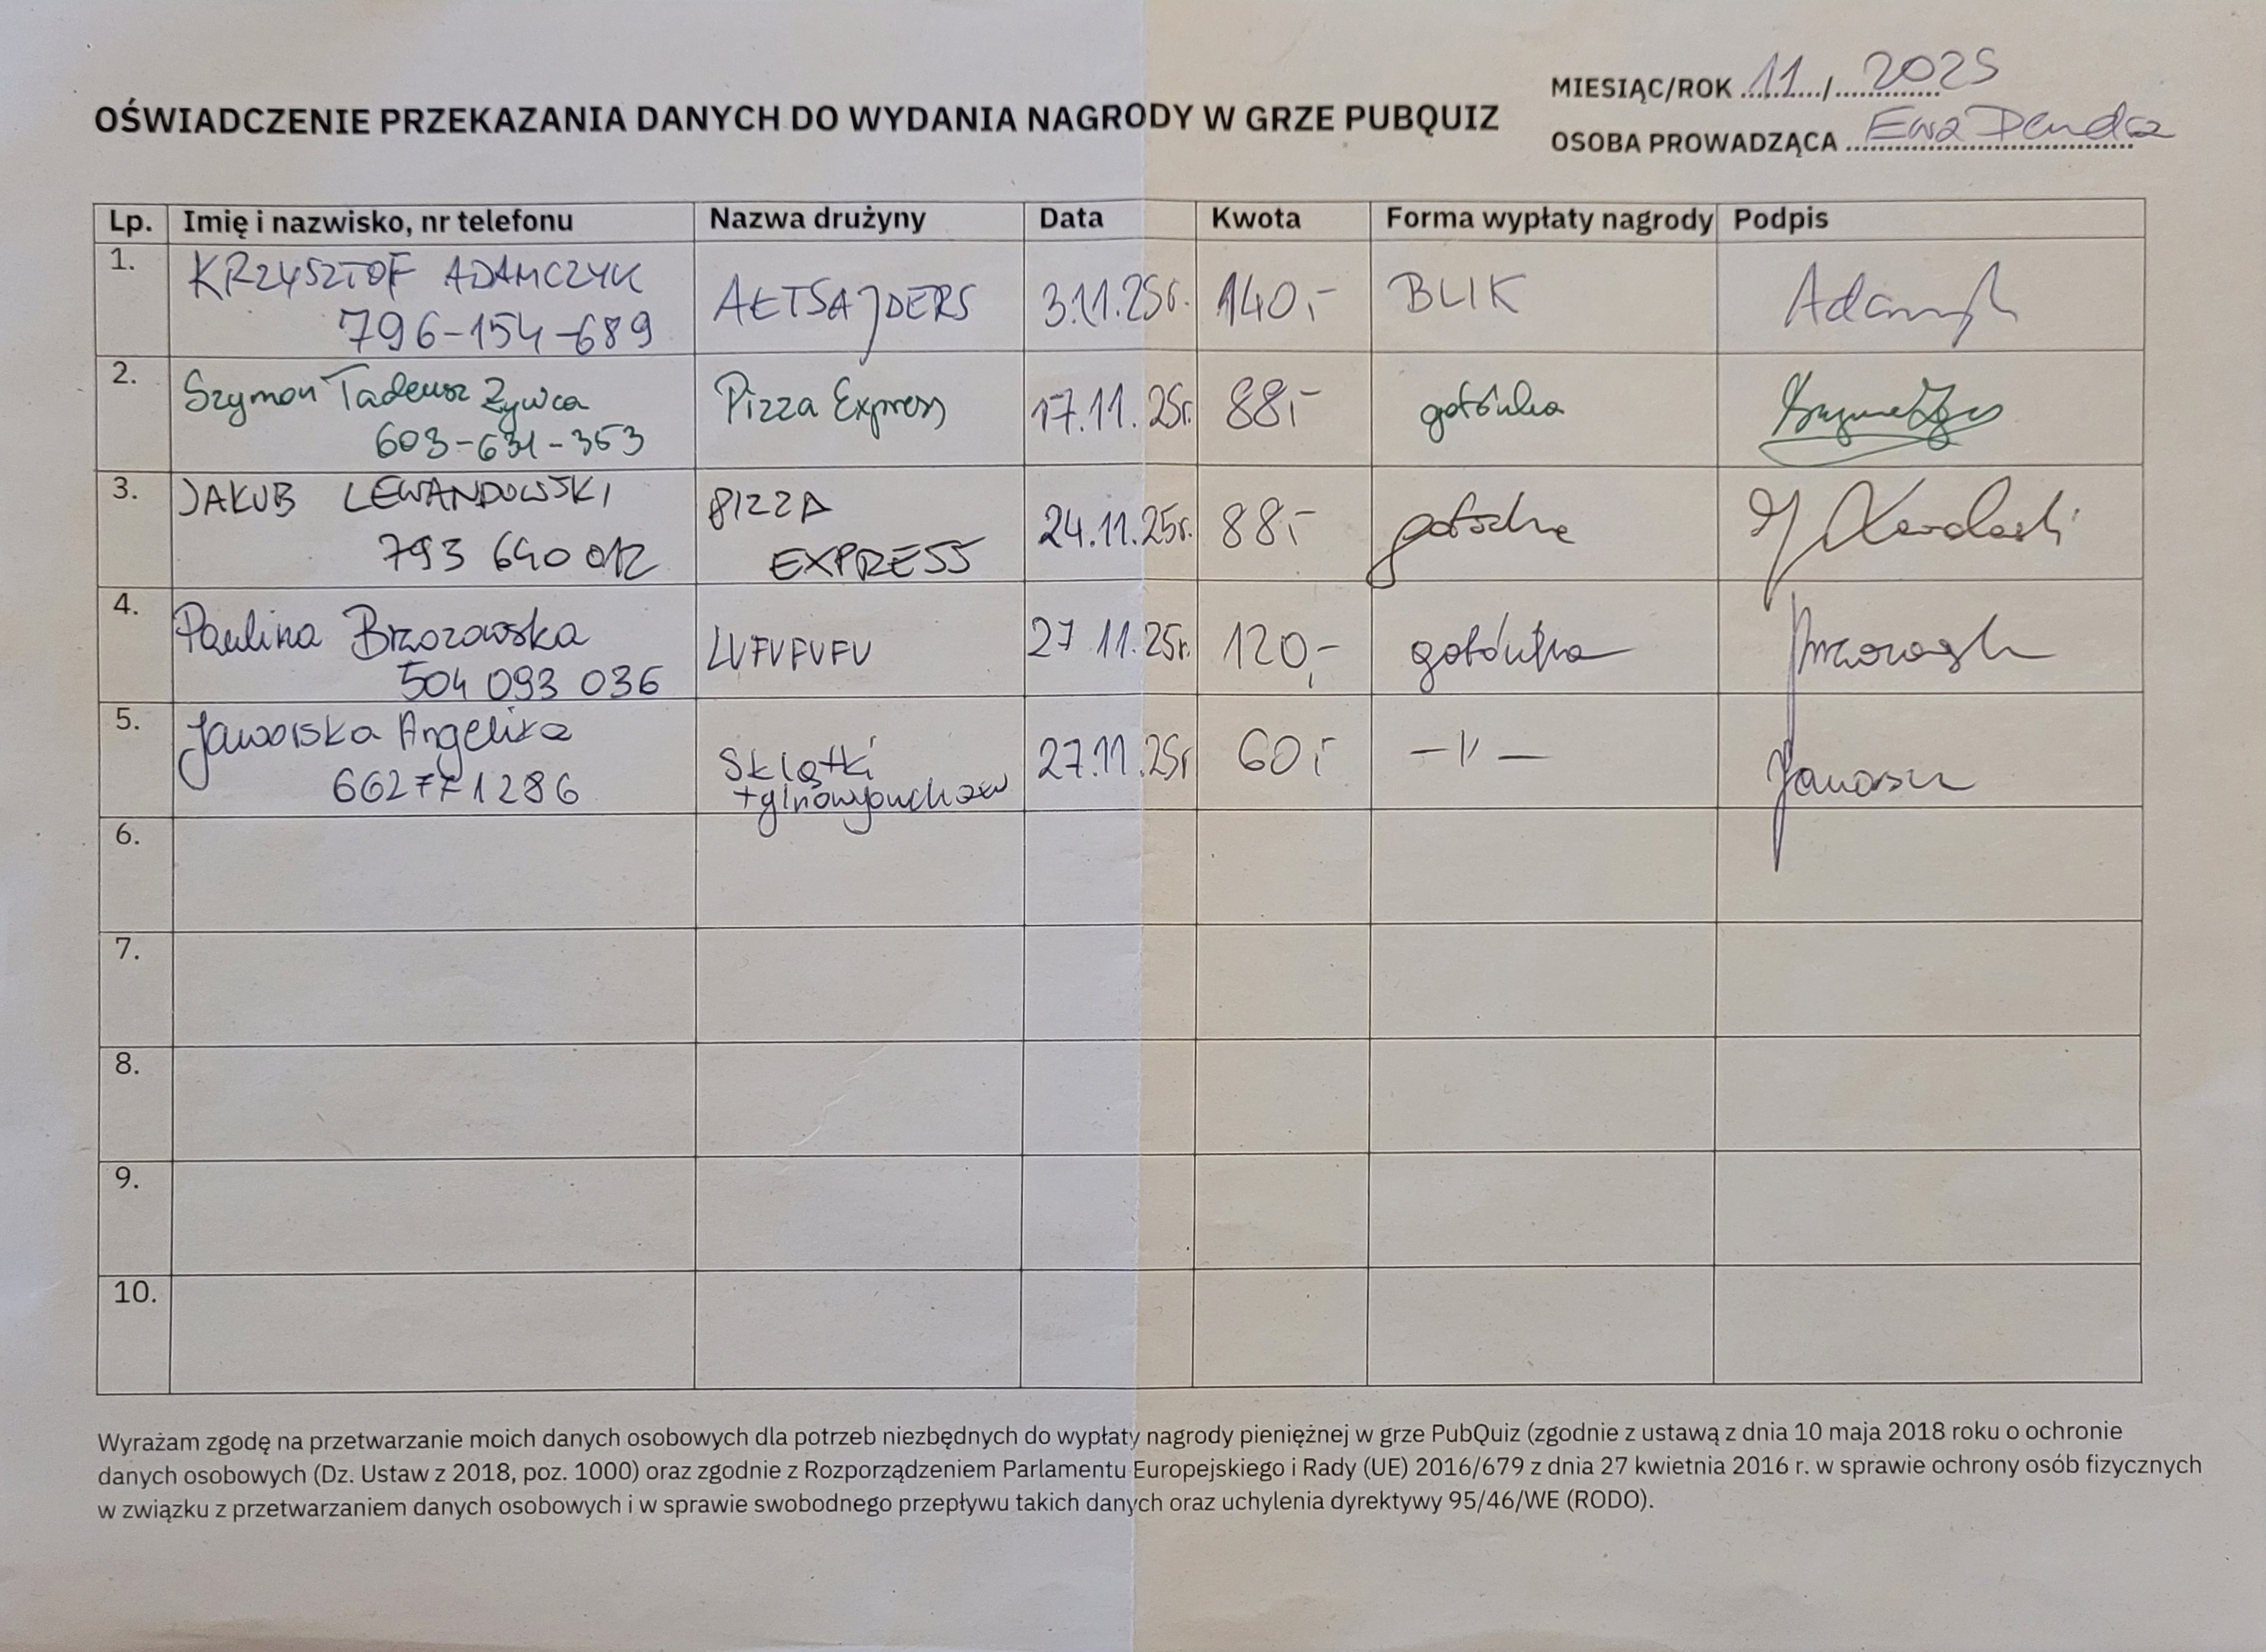 OŚWIADCZENIE PRZEKAZANIA DANYCH DO WYDANIA NAGRODY W GRZE PUBQUIZ
MIESIĄC/ROK 11 / 2025
OSOBA PROWADZĄCA Ewa
Lp. Imię i nazwisko, nr telefonu Nazwa drużyny Data Kwota Forma wypłaty nagrody Podpis
1. KRZYSZTOF ADAMCZYK AŁTSAJDERS 3.11.25r. 140,- BLIK
796-154-689
2. Szymon Tadeusz Żywca Pizza Express 17.11.25r. 88,- gotówka
603-631-353
3. JAKUB LEWANDOWSKI PIZZA 24.11.25r. 88,- gotówka
793 640 012 EXPRESS
4. Paulina Brzozowska LUFUFUFU 27 11.25r. 120,- gotówka
504 093 036
5. Jaworska Angelika 27.11.25r 60,- —〃—
662771286
6.
7.
8.
9.
10.
Wyrażam zgodę na przetwarzanie moich danych osobowych dla potrzeb niezbędnych do wypłaty nagrody pieniężnej w grze PubQuiz (zgodnie z ustawą z dnia 10 maja 2018 roku o ochronie
danych osobowych (Dz. Ustaw z 2018, poz. 1000) oraz zgodnie z Rozporządzeniem Parlamentu Europejskiego i Rady (UE) 2016/679 z dnia 27 kwietnia 2016 r. w sprawie ochrony osób fizycznych
w związku z przetwarzaniem danych osobowych i w sprawie swobodnego przepływu takich danych oraz uchylenia dyrektywy 95/46/WE (RODO).